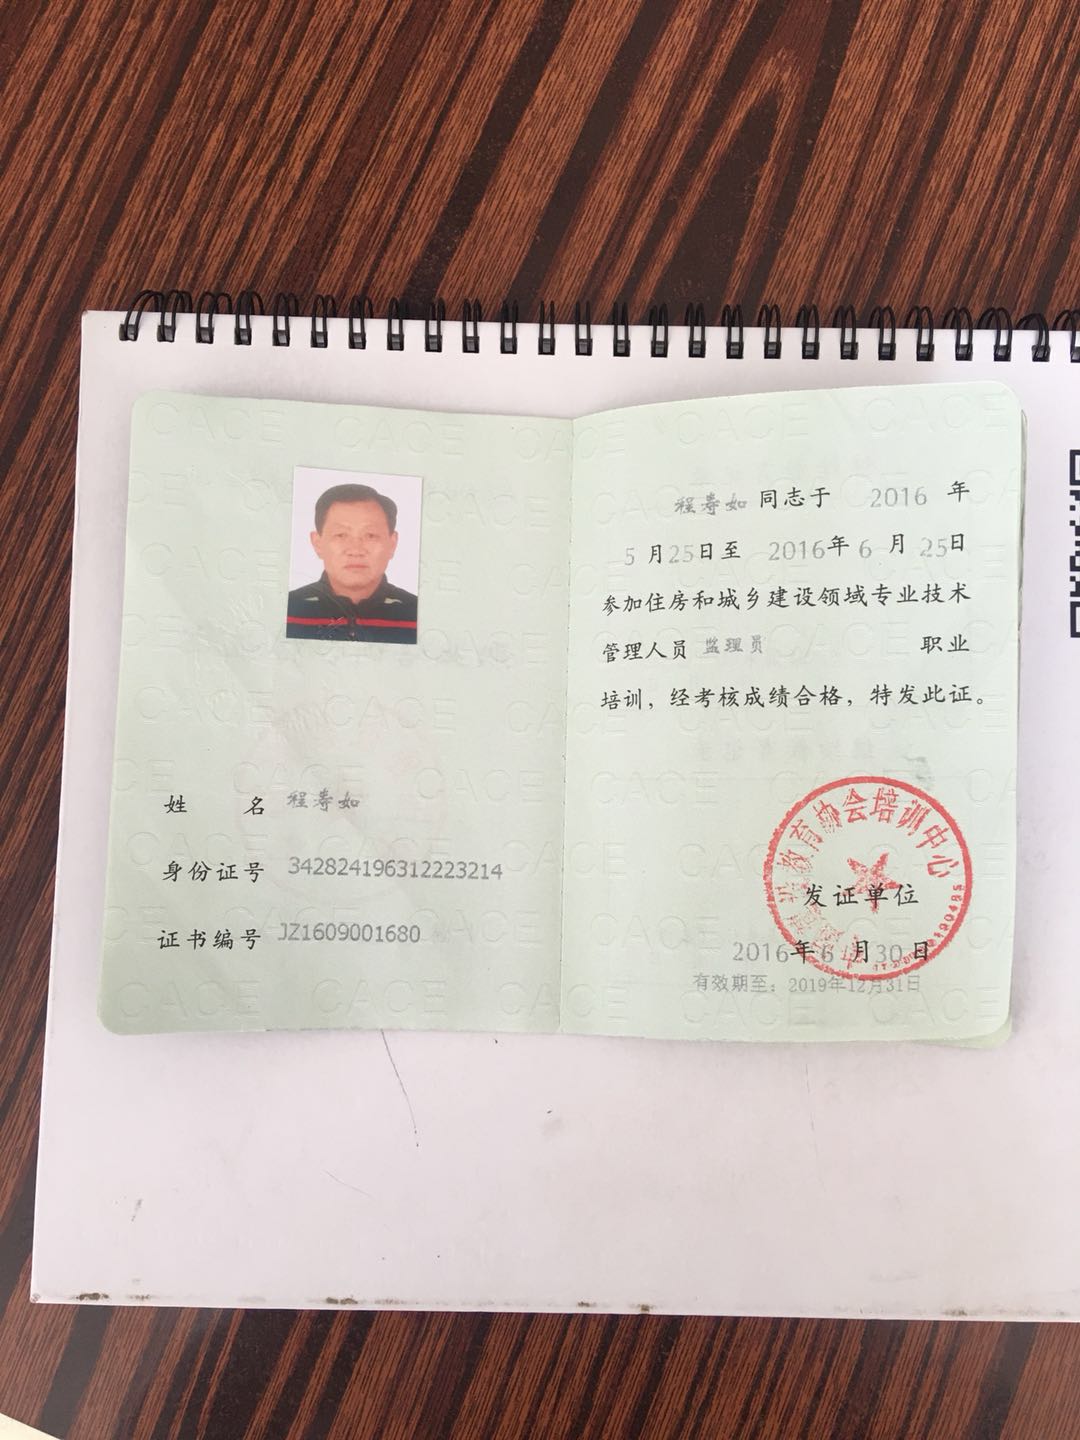 姓名 程寿如
身份证号 342824196312223214
证书编号 JZ1609001680
程寿如 同志于 2016 年
5 月 25 日至 2016 年 6 月 25 日
参加住房和城乡建设领域专业技术
管理人员 监理员 职业
培训，经考核成绩合格，特发此证。
教育协会培训中心
发证单位
2016 年 6 月 30 日
有效期至：2019年12月31日
CACE